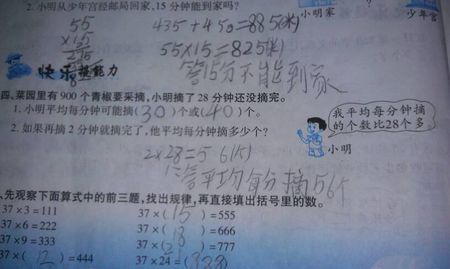 2. 小明从少年宫经邮局回家,15分钟能到家吗?
小明家 少年宫
55
×15
435+450=885(米)
55×15=825(米)
答:15分不能到家
快乐提能力
四、菜园里有900个青椒要采摘,小明摘了28分钟还没摘完。
1. 小明平均每分钟可能摘(30)个或(40)个。
我平均每分钟摘
的个数比28个多。
小明
2. 如果再摘2分钟就摘完了,他平均每分钟摘多少个?
2×28=56(个)
答平均每分摘56个
先观察下面算式中的前三题,找出规律,再直接填出括号里的数。
37×3=111 37×(15)=555
37×6=222 37×(18)=666
37×9=333 37×( )=777
37×(12)=444 37×24=(888)